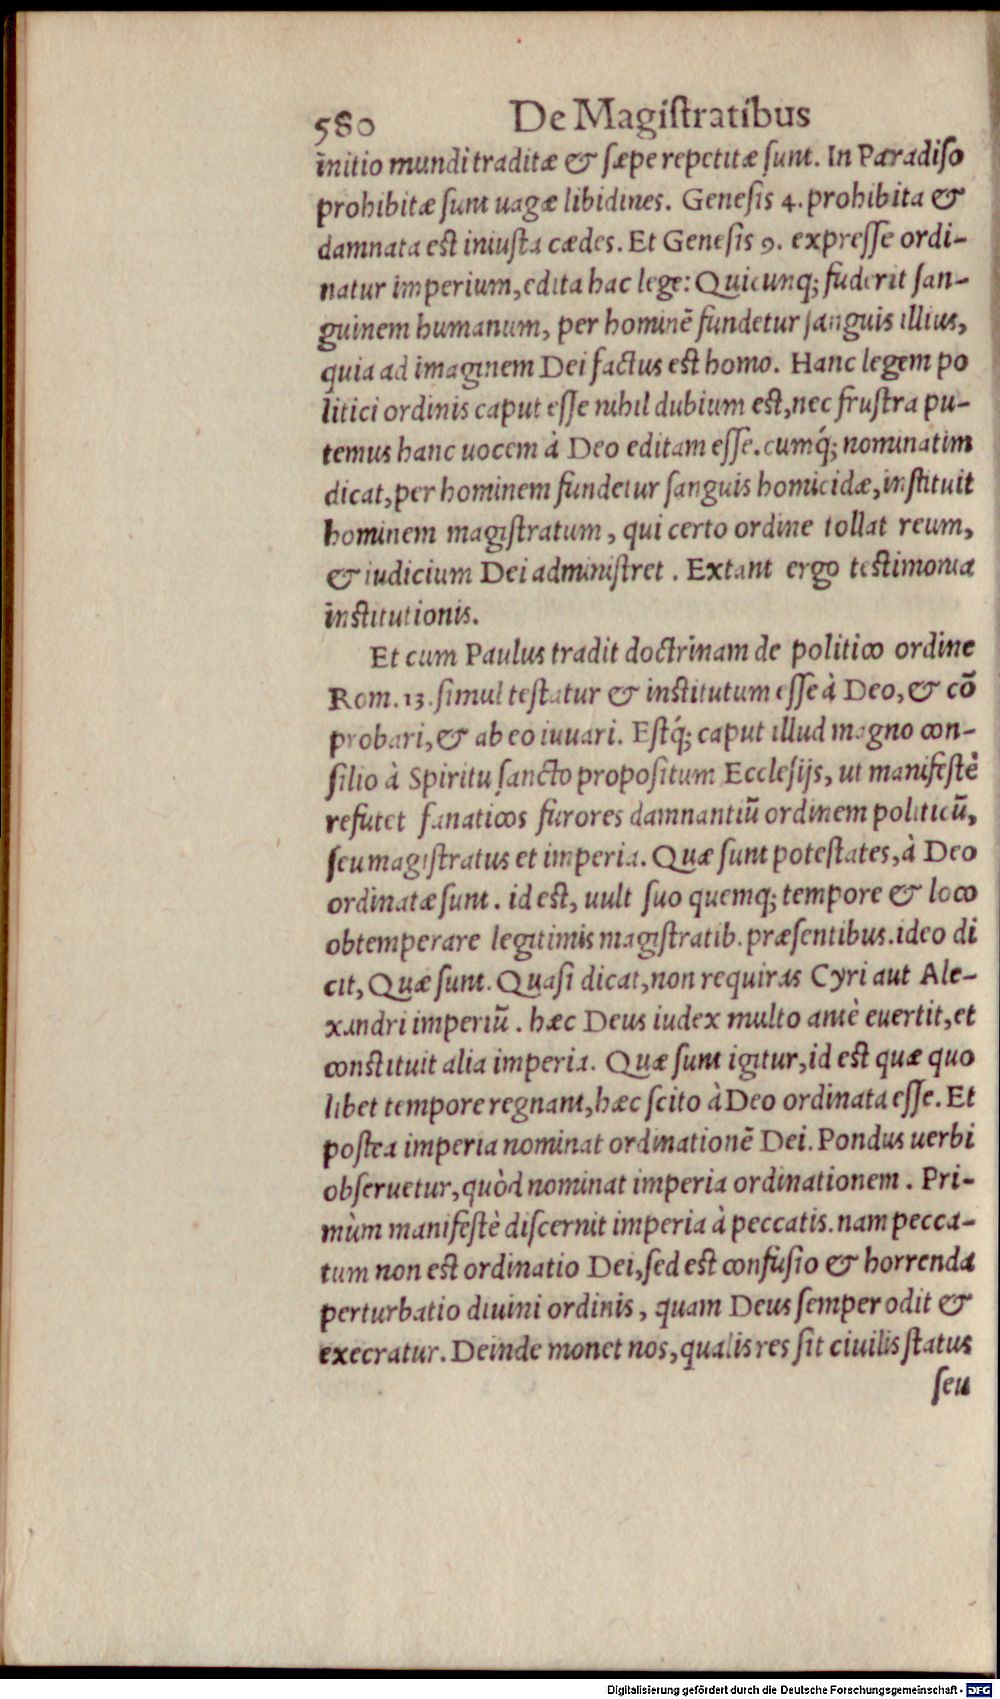 580 De Magistratibus
initio mundi traditæ & sæpe repetitæ sunt. In Paradiso
prohibitæ sunt uagæ libidines. Genesis 4. prohibita &
damnata est iniusta cædes. Et Genesis 9. expresse ordi-
natur imperium, edita hac lege: Quicunq; fuderit san-
guinem humanum, per hominē fundetur sanguis illius,
quia ad imaginem Dei factus est homo. Hanc legem po
litici ordinis caput esse nihil dubium est, nec frustra pu-
temus hanc uocem à Deo editam esse. cumq́; nominatim
dicat, per hominem fundetur sanguis homicidæ, instituit
hominem magistratum, qui certo ordine tollat reum,
& iudicium Dei administret. Extant ergo testimonia
institutionis.
Et cum Paulus tradit doctrinam de politico ordine
Rom. 13. simul testatur & institutum esse à Deo, & cō
probari, & ab eo iuuari. Estq́; caput illud magno con-
silio à Spiritu sancto propositum Ecclesijs, ut manifestè
refutet fanaticos furores damnantiū ordinem politicū,
seu magistratus et imperia. Quæ sunt potestates, à Deo
ordinatæ sunt. id est, uult suo quemq; tempore & loco
obtemperare legitimis magistratib. præsentibus. ideo di
cit, Quæ sunt. Quasi dicat, non requiras Cyri aut Ale-
xandri imperiū. hæc Deus iudex multo antè euertit, et
constituit alia imperia. Quæ sunt igitur, id est quæ quo
libet tempore regnant, hæc scito à Deo ordinata esse. Et
postea imperia nominat ordinationē Dei. Pondus uerbi
obseruetur, quòd nominat imperia ordinationem. Pri-
mùm manifestè discernit imperia à peccatis. nam pecca-
tum non est ordinatio Dei, sed est confusio & horrenda
perturbatio diuini ordinis, quam Deus semper odit &
execratur. Deinde monet nos, qualis res sit ciuilis status
seu
Digitalisierung gefördert durch die Deutsche Forschungsgemeinschaft - DFG